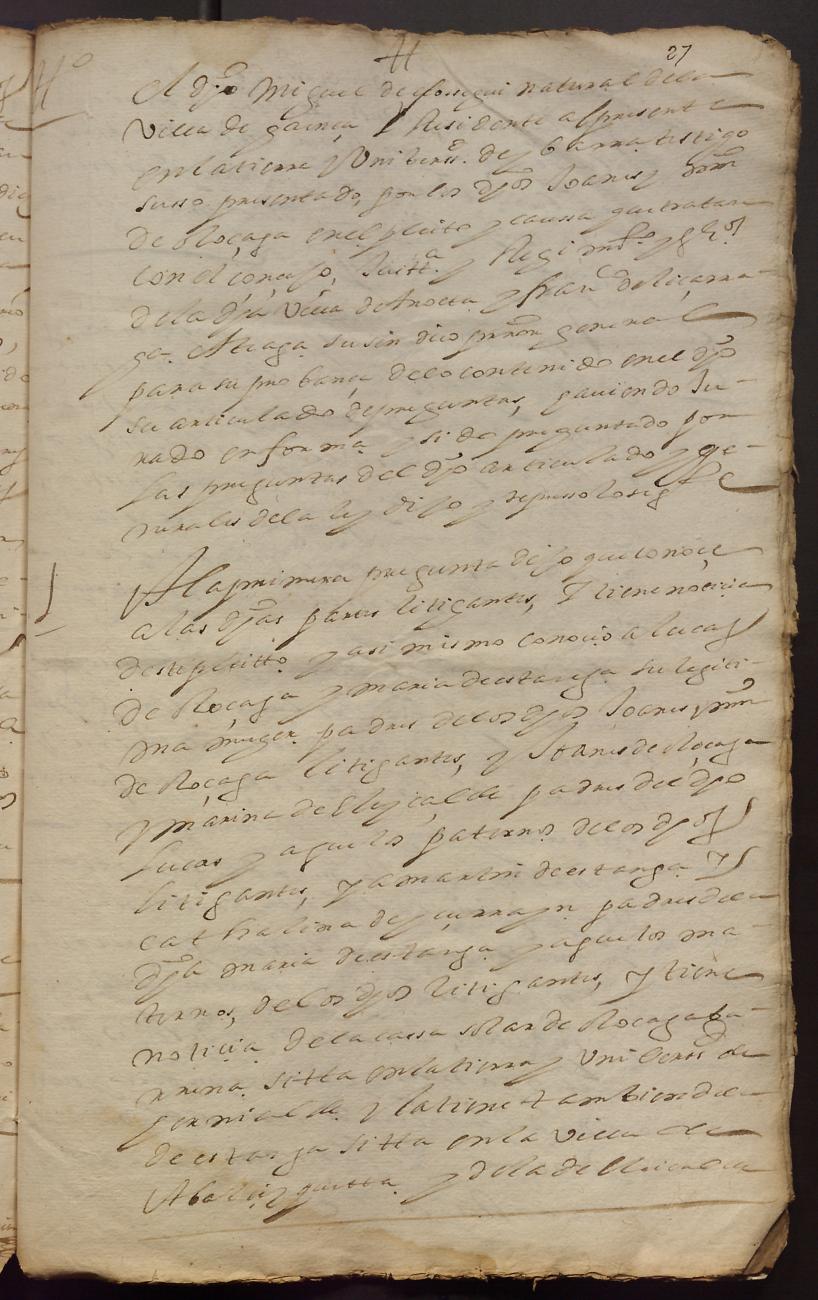 27
El dho Miguel de natural de la
Villa de gainça Residente al presente
en la tierra y Universd. de testigo
susso presentado, por los dhos Joanes y mrn
de Roçaga en el pleito y caussa que tratan
con el conçejo, Justta. y Regimto. y
de la dha Villa de Anoeta y franco de liçarra
ga Ateaga su sindico prror general
para su probança de lo contenido en el dho
su articulado de preguntas, haviendo Ju-
rado en forma y sido preguntado por
las preguntas del dho articulado y ge-
nerales de la ley dijo y depusso lo sigte
A la primera pregunta dijo que conoçe
a las dhas partes litigantes, y tiene noticia
deste pleitto y asi mismo conocio a lucas
de Roçaga y maria de estanga su legiti-
ma muger padres de los dhos Joanes y mrn
de Roçaga litigantes, y Joanes de Roçaga
y marina de Eleiçalde padres del dho
lucas y aguelos paternos de los dhos
litigantes, y a martin de estanga y
cathalina de padres de la
dha maria de estanga y aguelos ma-
ternos, de los dhos litigantes, y tiene
noticia de la cassa solar de Roçaga ba-
rrena sitta en la tierra y Universd de
y la tiene tambien de la
de estanga sitta en la Villa de
Abalçizquetta y de la de Eleicalde